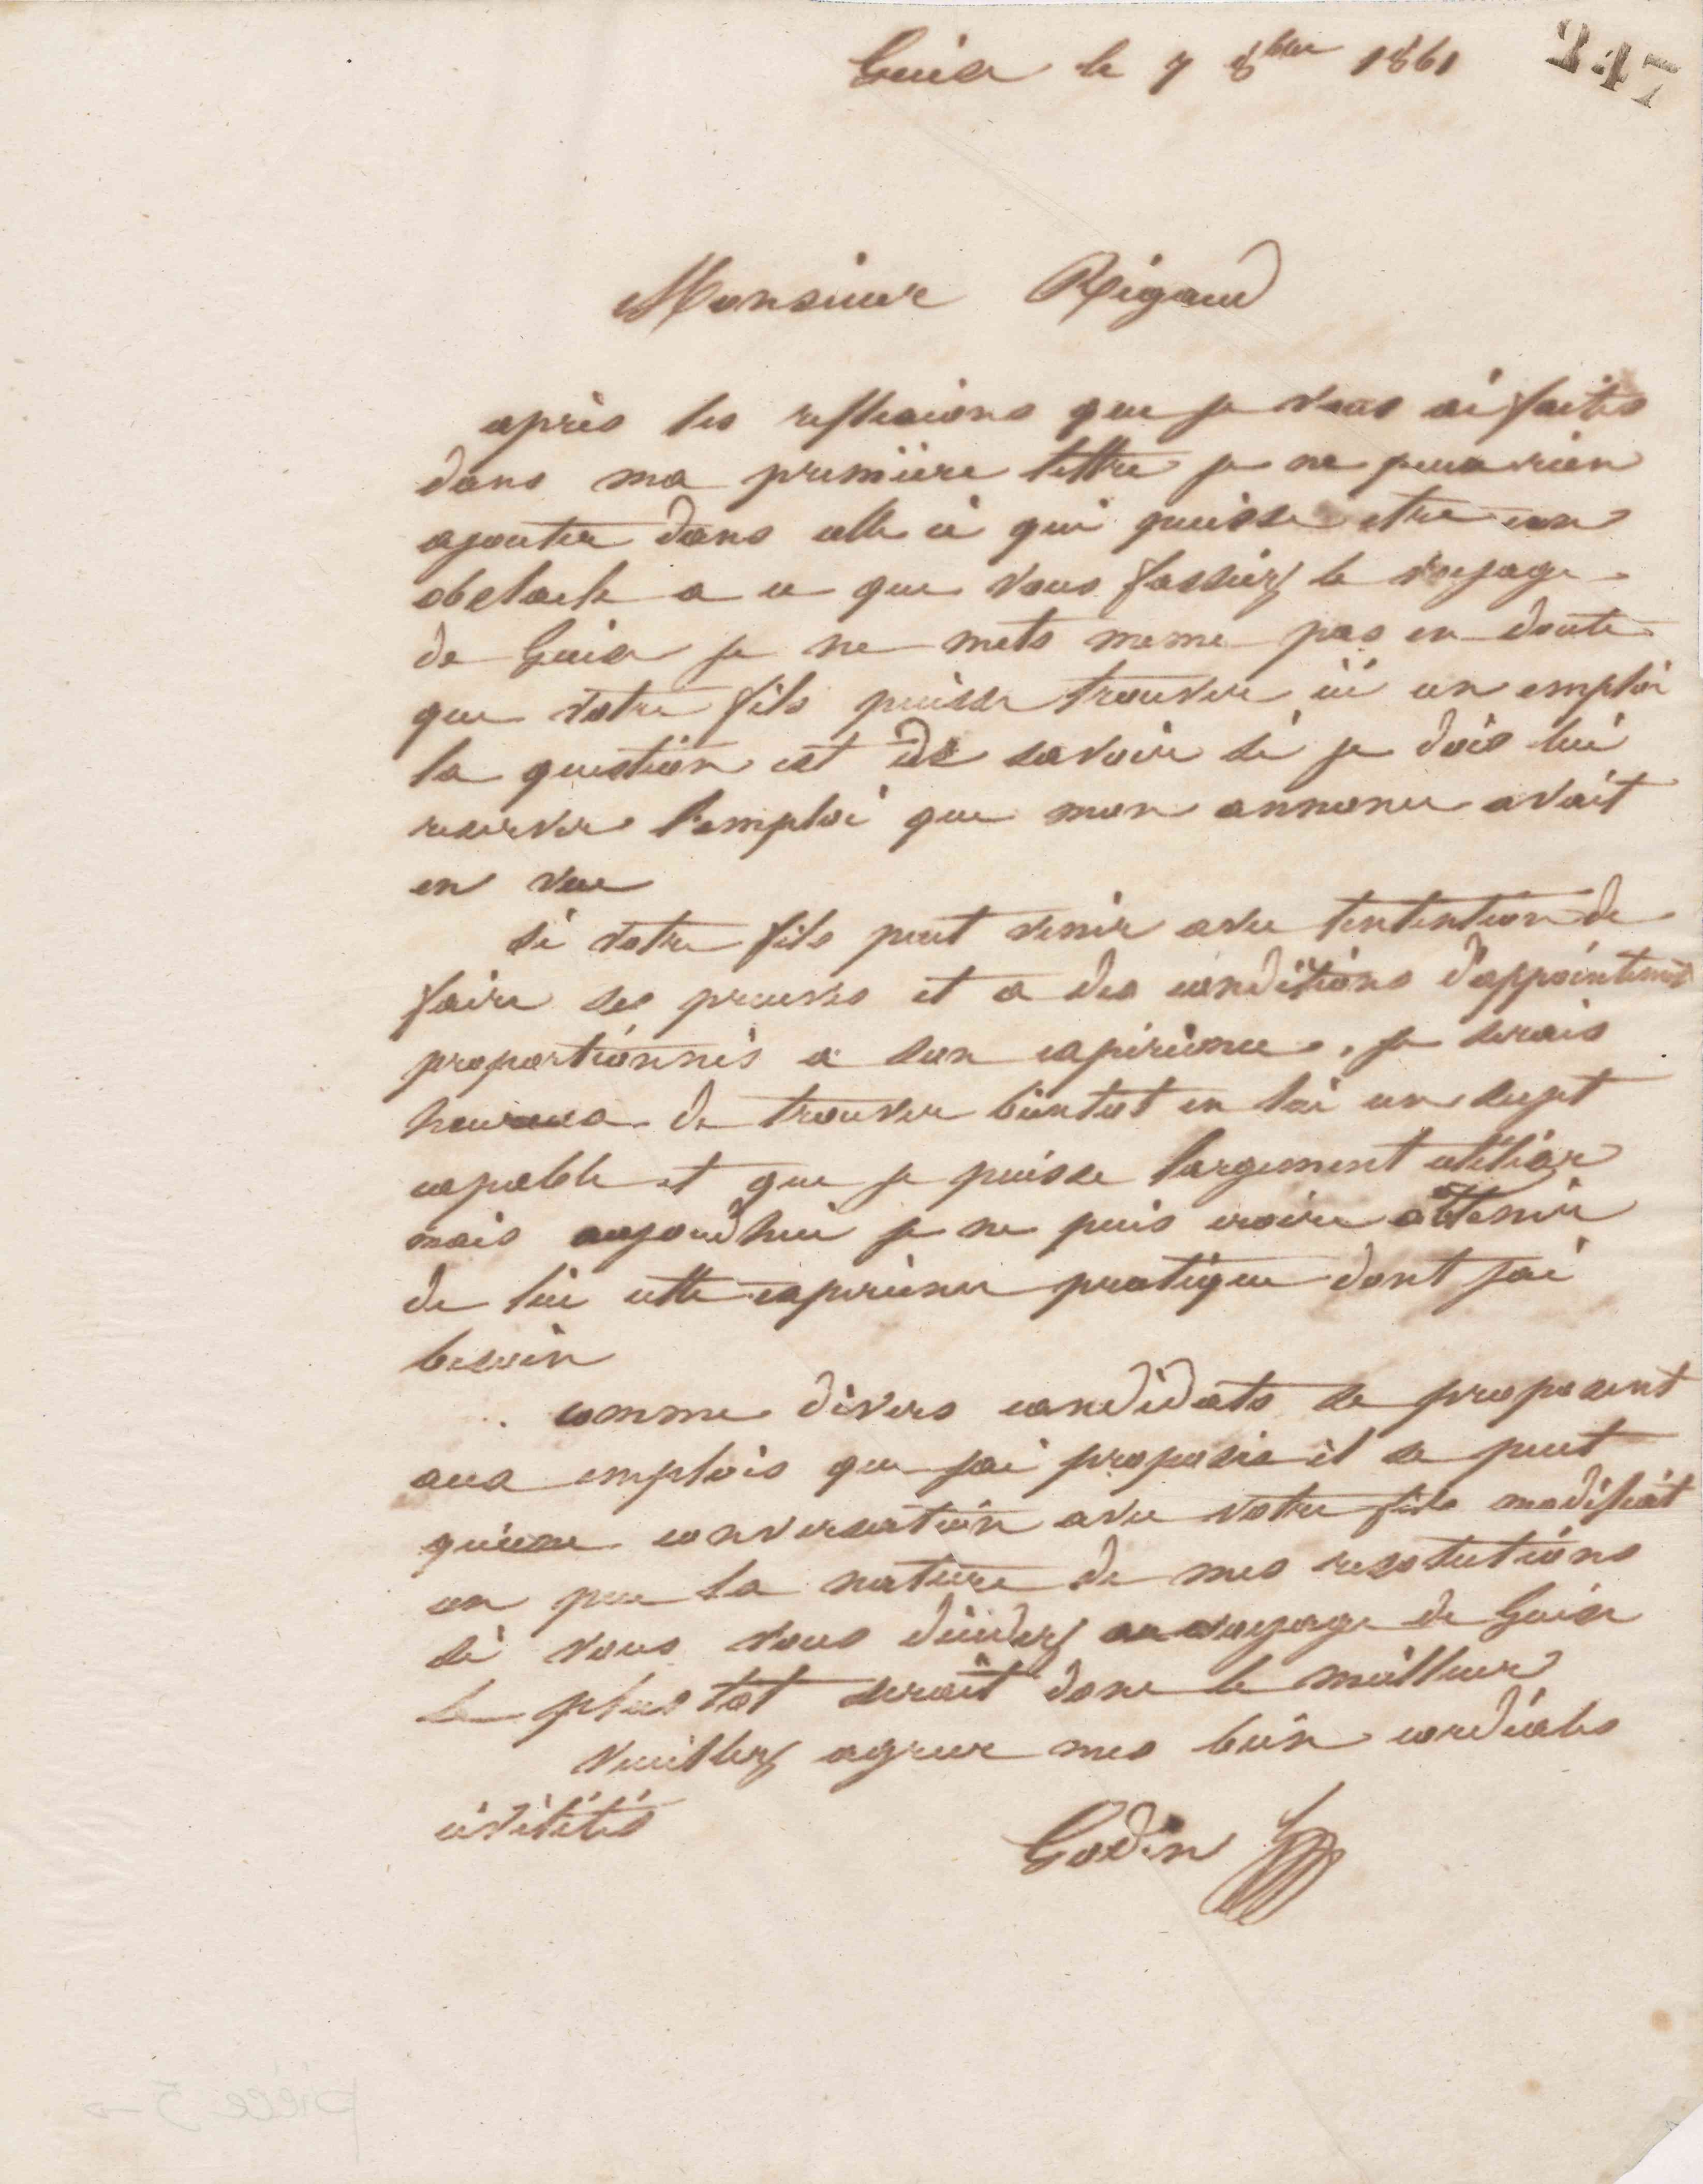 Guise le 7 8bre 1861
247
Monsieur Rigaud
après les reflexions que je vous ai faites
dans ma première lettre je ne peux rien
ajouter dans celle ci qui puisse etre un
obstacle a ce que vous fassiez le voyage
de Guise je ne mets meme pas en doute
que votre fils puisse trouver ici un emploi
la question est de savoir si je dois lui
reserver l'emploi que mon annonce avait
en vue
si votre fils peut venir avec l'intention de
faire ses preuves et a des conditions d'appointement
proportionnés a son expérience, je serais
heureux de trouver bientot en lui un sujet
capable et que je puisse largement utiliser
mais aujourdhui je ne puis croire obtenir
de lui cette experience pratique dont jai
besoin
comme divers candidats se proposent
aux emplois que jai proposés il se peut
qu'une conversation avec votre fils modifiat
un peu la nature de mes resolutions
si vous vous décidez au voyage de Guise
le plus tot serait donc le meilleur
veuillez agreer mes bien cordiales
civilités
Godin
pièce 5